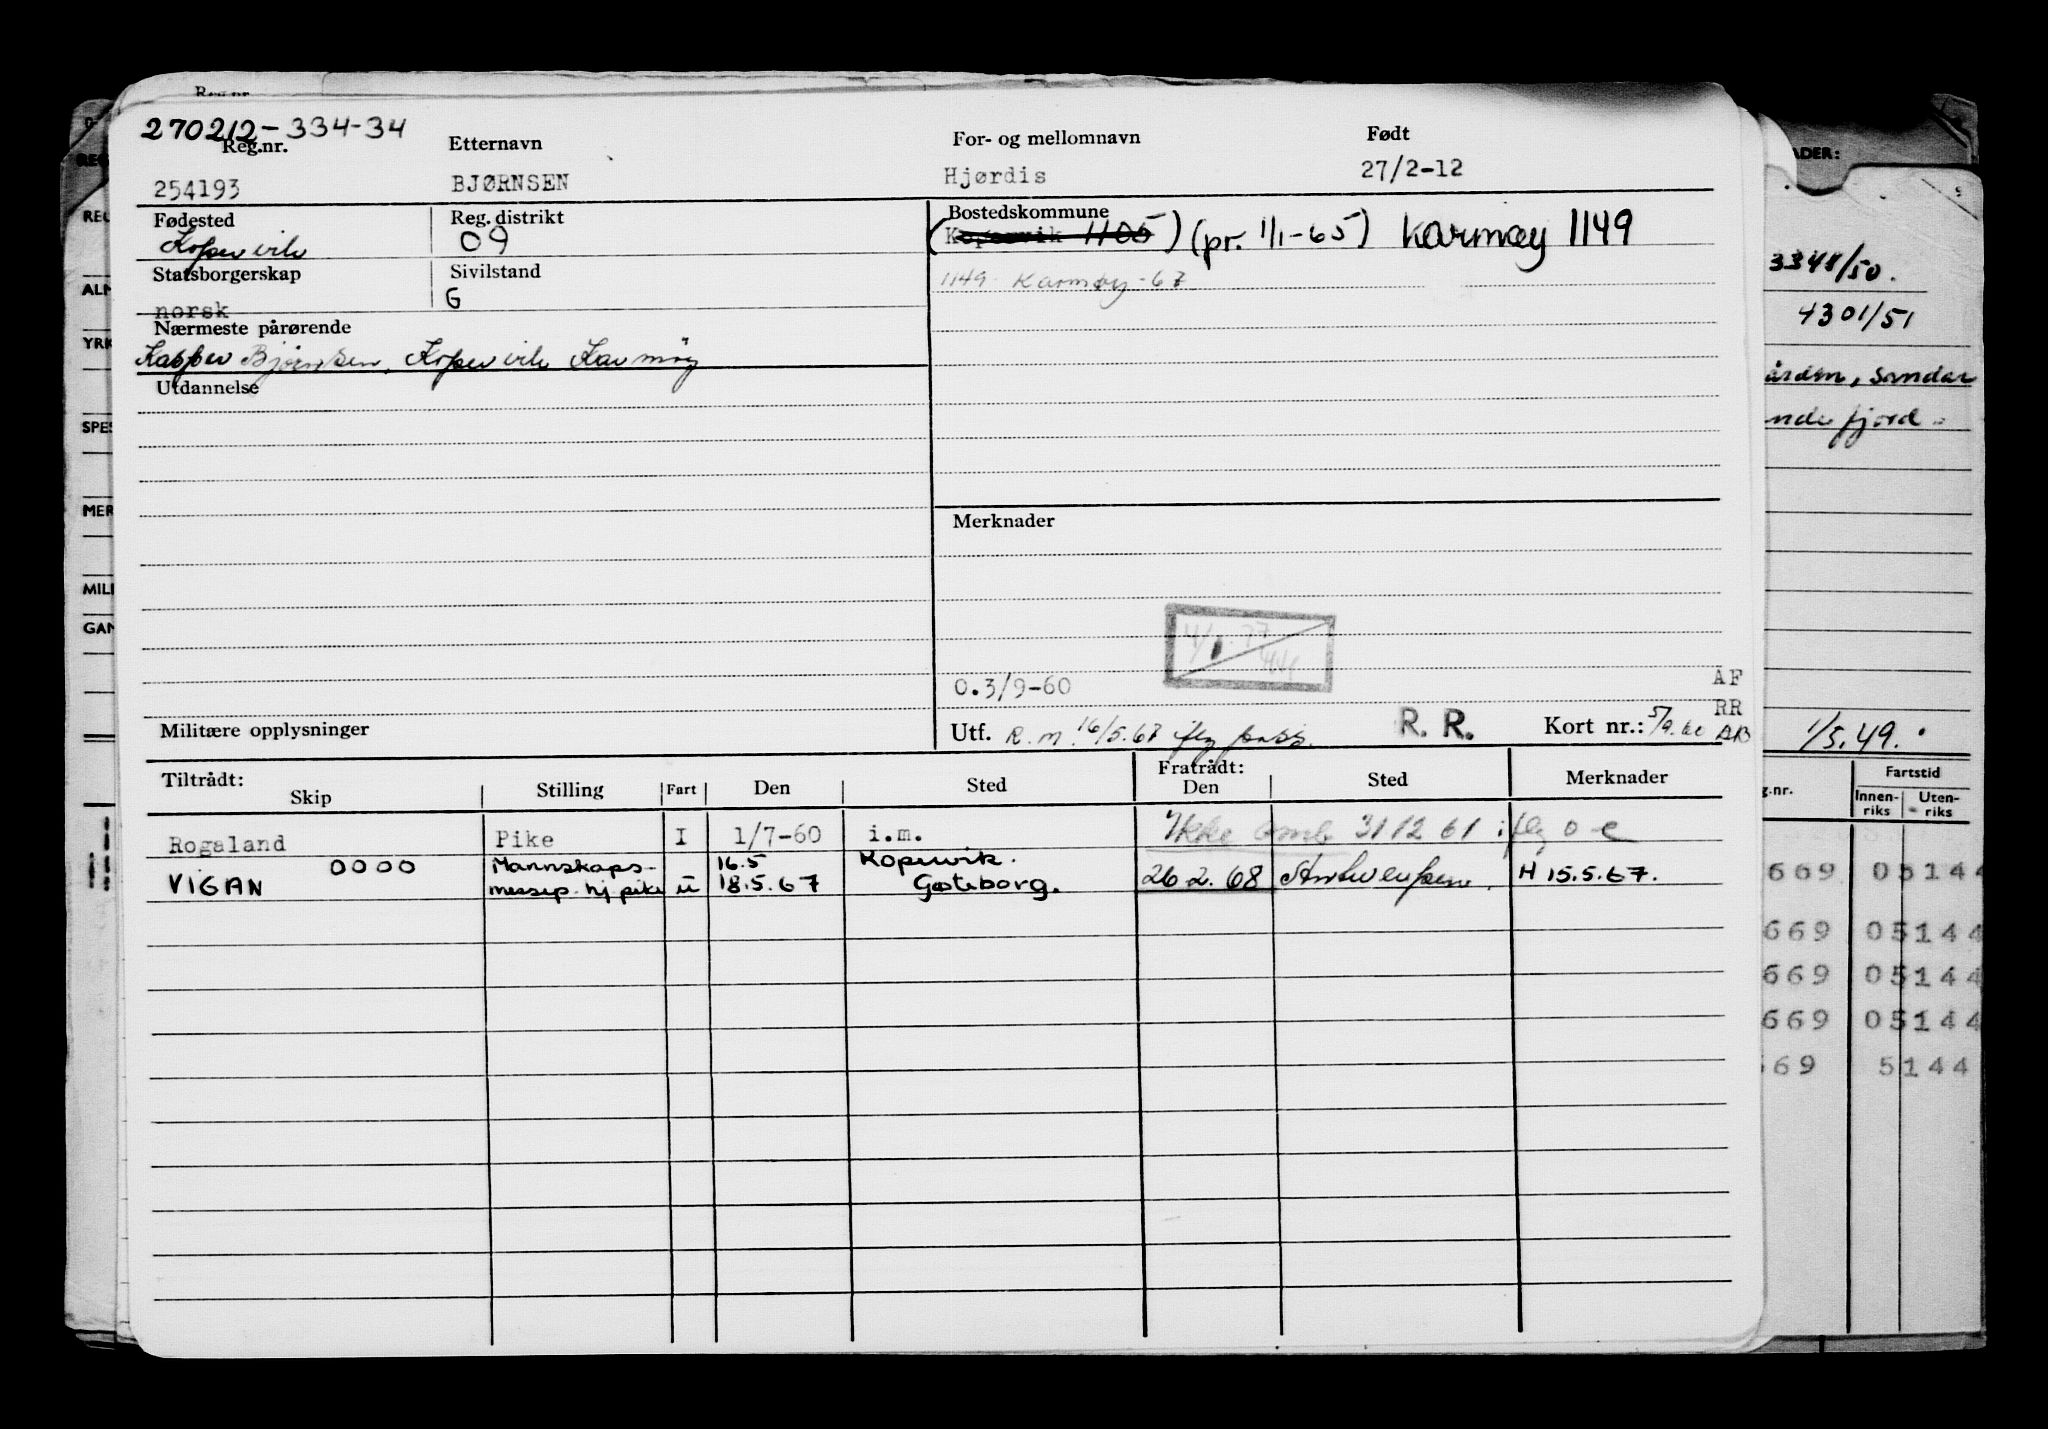 Reg.nr.
270212-334-34
Reg.nr. Etternavn For- og mellomnavn Født
254193 BJØRNSEN Hjørdis 27/2-12
Fødested Reg. distrikt Bostedskommune
Kopervik 09 (Kopervik 1105) (pr. 1/1-65) Karmøy 1149
Statsborgerskap Sivilstand
norsk G 1149 Karmøy -67
Nærmeste pårørende
Kasper Bjørnsen, Kopervik Karmöy
Utdannelse
Merknader
0.3/9-60
AF
RR
AB
Militære opplysninger Utf. R.m. 16/5.67 iflg pass. R. R. Kort nr.: 5/9.60
Tiltrådt: Fratrådt:
Skip Stilling Fart Den Sted Den Sted Merknader
Rogaland Pike I 1/7-60 i.m. Ikke omb 31 12 61 iflg o-e
0000 Mannskaps- 16.5 Kopervik.
VIGAN messep. hj pike U 18.5.67 Gøteborg. 26.2.68 Antwerpen. H 15.5.67.
REG
ALM
YRK
SPES
MER
MILI
GAN
ADER:
3348/50.
4301/51
ården, Sandar
ndefjord.
1/5.49.
g.nr. Fartstid
Innen-riks Uten-riks
669 05144
669 05144
669 05144
669 05144
69 5144